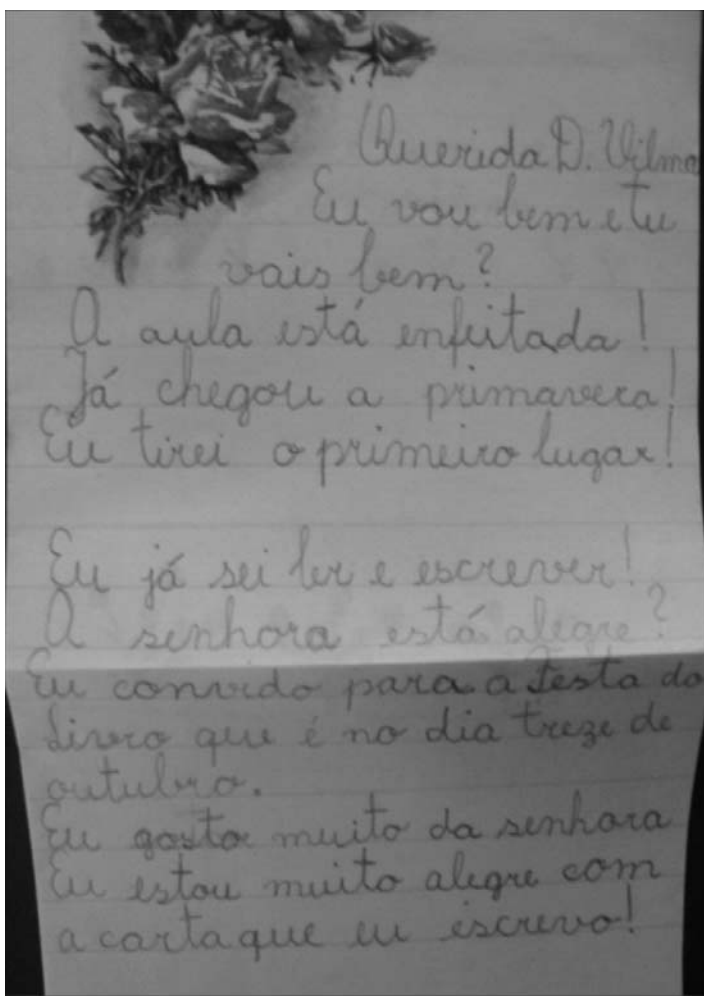 Querida D. Vilma
Eu vou bem e tu
vais bem?
A aula está enfeitada!
Já chegou a primavera!
Eu tirei o primeiro lugar!
Eu já sei ler e escrever!
A senhora está alegre?
Eu convido para a Festa do
Livro que é no dia treze de
outubro.
Eu gosto muito da senhora
Eu estou muito alegre com
a carta que eu escrevo!